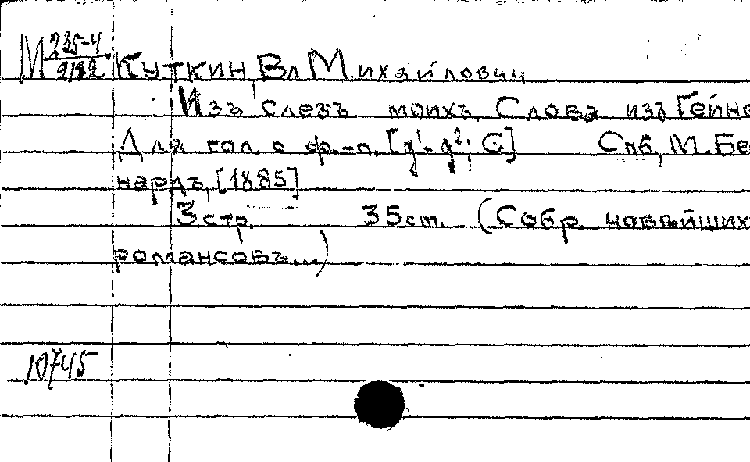 М 235-4/9122 Куткин, Вл Михайлович
Изъ слезъ моихъ. Слова изъ Гейне
Для гол. с ф.-п. [g¹-g²; G] Спб, М. Бер
нардъ, [1885]
3 стр. 35 ст. (Собр. новѣйших
романсовъ...)
10745